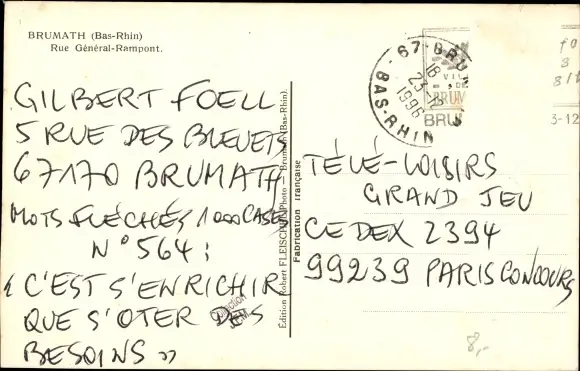 BRUMATH (Bas-Rhin)
Rue Général-Rampont.
GILBERT FOELL
5 RUE DES BLEUETS
67170 BRUMATH
MOTS FLÉCHÉS 1000 CASES
N° 564 :
« C'EST S'ENRICHIR
QUE S'OTER DES
BESOINS »
Édition Robert FLEISCH, Photo — Brumath (Bas-Rhin).
Fabrication française
67-BRU
18
23-
1996
BAS-RHIN
VIL
DE
BRUM
BRU
3-12
TÉLÉ-LOISIRS
GRAND JEU
CEDEX 2394
99239 PARIS CONCOURS
Collection
8,-